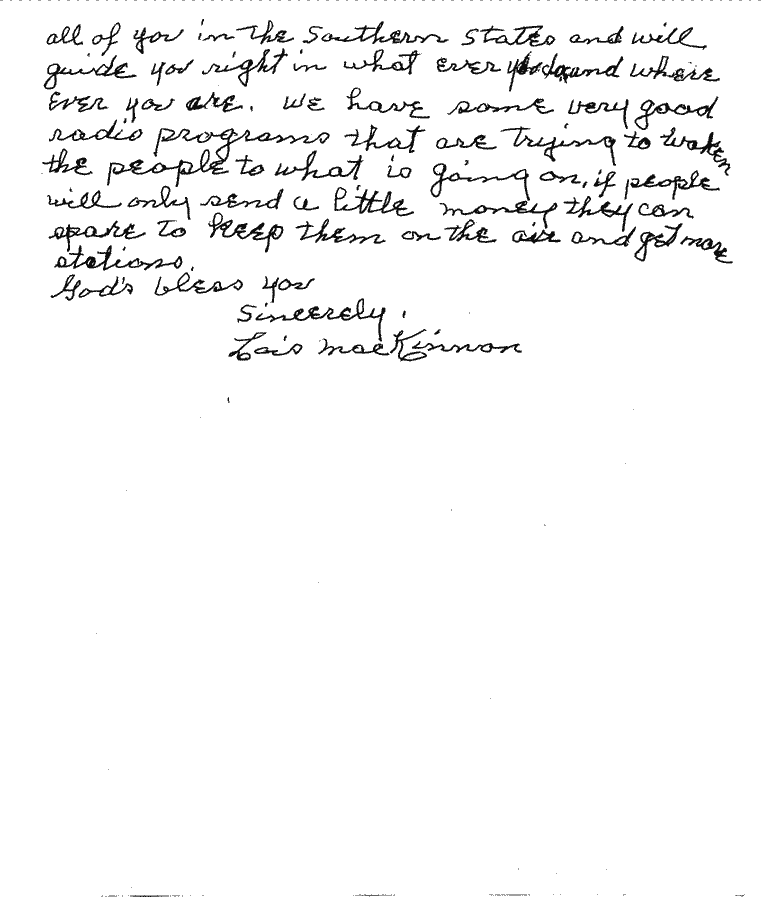 all of you in the Southern States and will
guide you right in what ever you do and where
ever you are. We have some very good
radio programs that are trying to waken
the people to what is going on, if people
will only send a little money they can
spare to keep them on the air and get more
stations.
God's bless you
Sincerely,
Lois MacKinnon